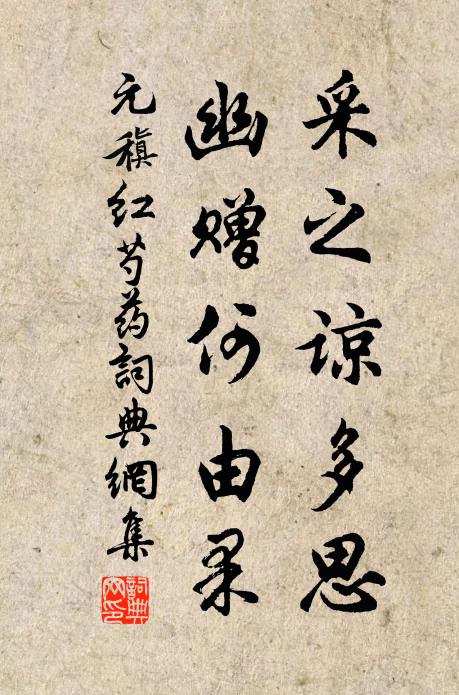 采之諒多思
幽赠何由果
元稹红芍药詞典網集
詞典网印